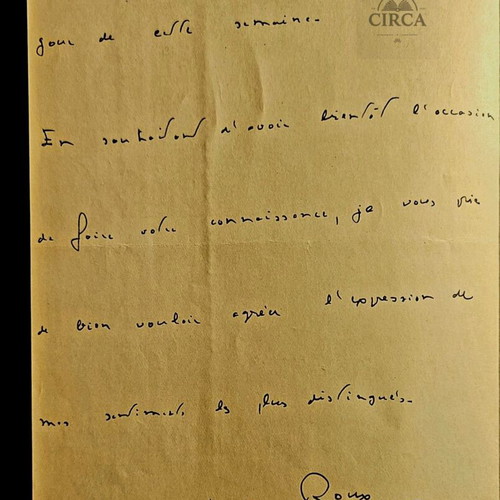 CIRCA
jour de cette semaine.
En souhaitant d'avoir bientôt l'occasion
de faire votre connaissance, je vous prie
de bien vouloir agréer l'expression de
mes sentiments les plus distingués.
Roux